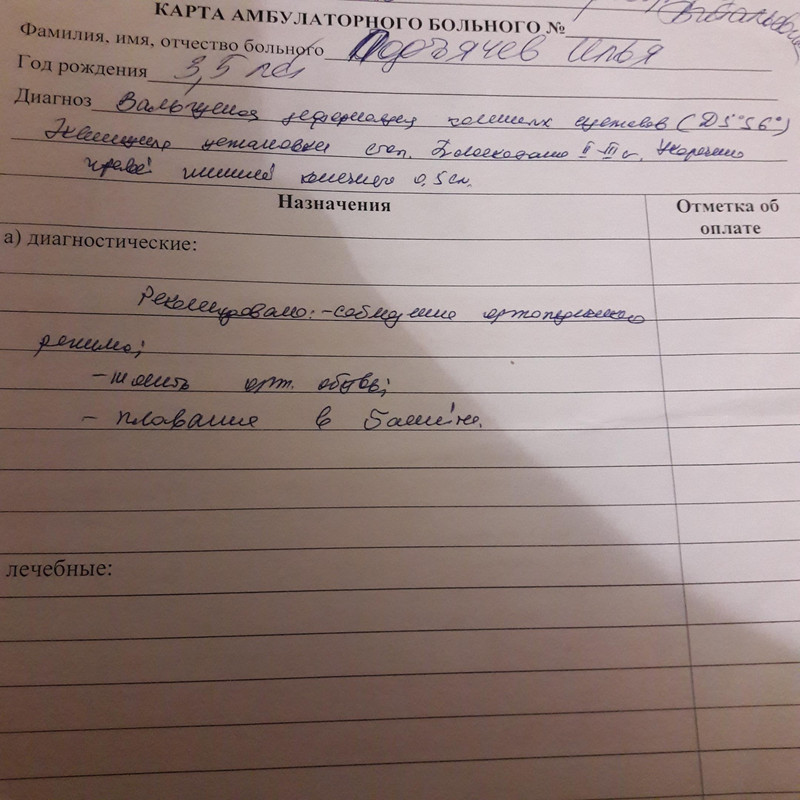 КАРТА АМБУЛАТОРНОГО БОЛЬНОГО №
Фамилия, имя, отчество больного Подъячев Илья
Год рождения 3,5 лет
Диагноз Вальгусная деформация коленных суставов (D5° S6°)
установка стоп. Плоскостопие II-III ст. Укорочение
правой нижней конечности 0,5 см.
Назначения
Отметка об оплате
а) диагностические:
Рекомендовано: - соблюдение ортопедического
режима;
- носить орт. обувь;
- плавание в бассейне.
лечебные: